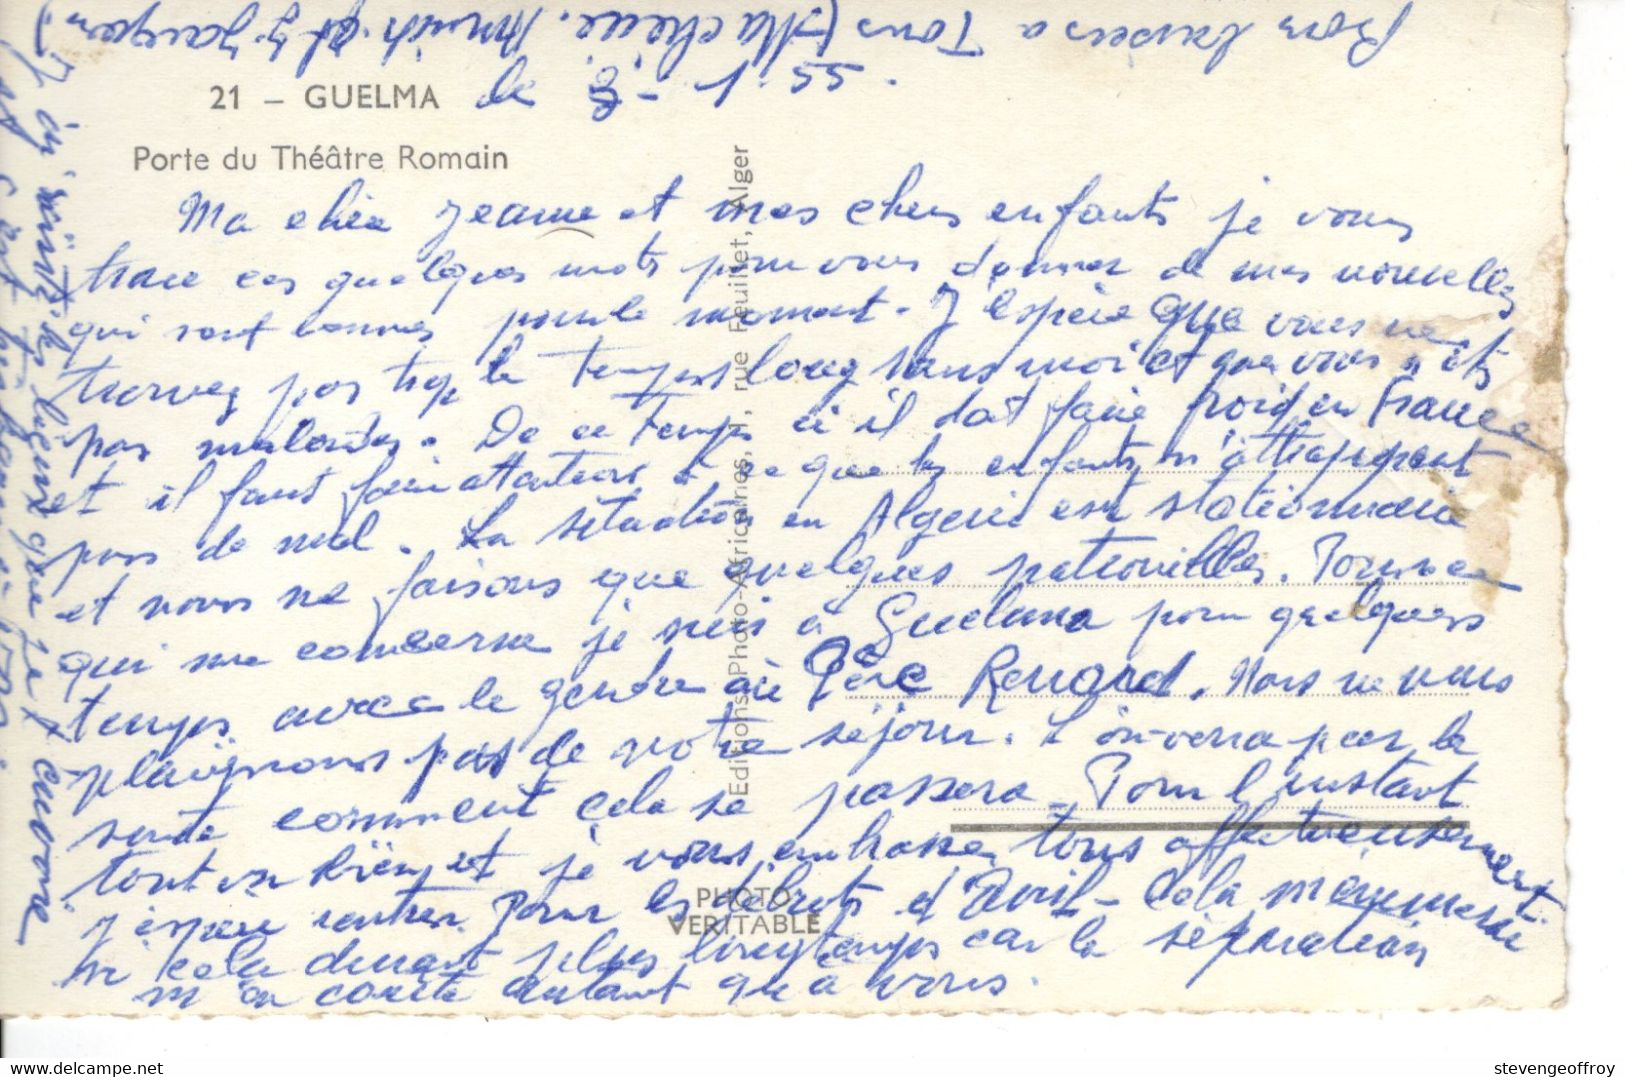 21 – GUELMA
le 8-1-55.
Porte du Théâtre Romain
Ma chère Jeanne et mes chers enfants je vous
trace ces quelques mots pour vous donner de mes nouvelles
qui sont bonnes pour le moment. J'espère que vous ne
trouvez pas trop le temps long sans moi et que vous n'êtes
pas malades. De ce temps ci il doit faire froid en France
et il faut faire attention à ce que les enfants n'attrappent
pas de mal. La situation en Algérie est stationnaire
et nous ne faisons que quelques patrouilles. Pour ce
qui me concerne je suis à Guelma pour quelques
temps avec le gendre au Père Renard. Nous ne nous
plaignons pas de notre séjour. L'on verra par la
suite comment cela se passera. Pour l'instant
tout va bien et je vous embrasse tous affectueusement.
J'espère rentrer pour les débuts d'Avril - Cela
si cela durait plus longtemps car la séparation
m'en coûte autant qu'à vous.
Bons baisers à Tous
Editions Photo-Africaines, 1, rue Feuillet, Alger
PHOTO
VERITABLE
delcampe.net
stevengeoffroy